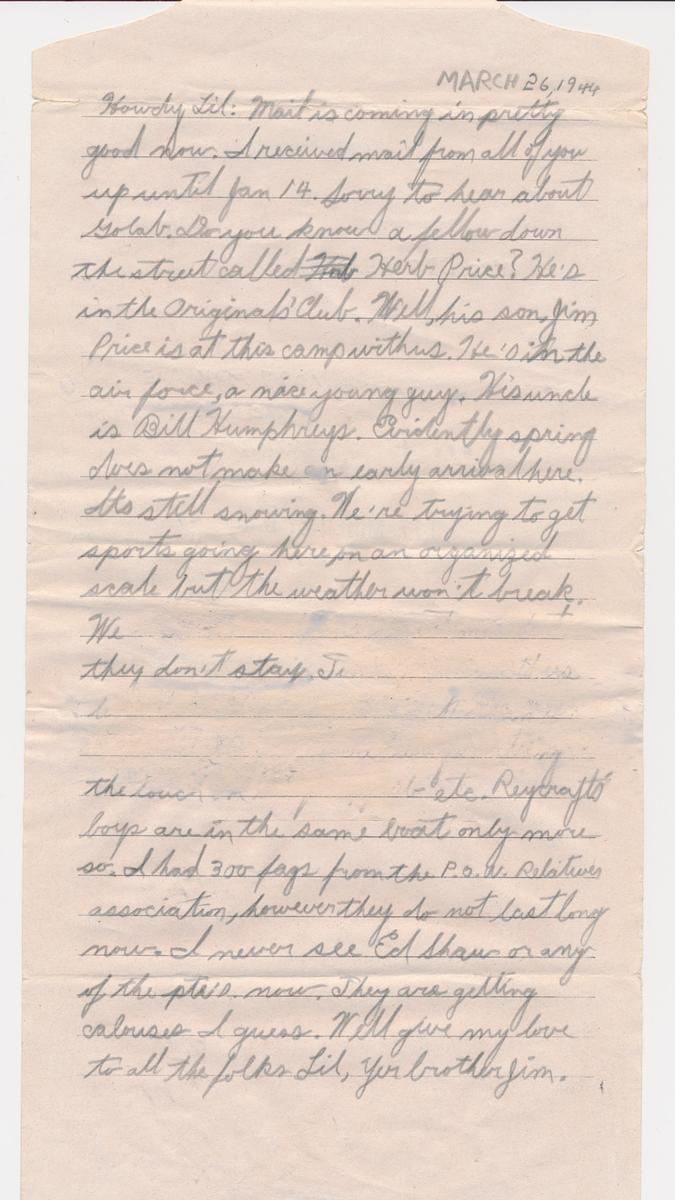 MARCH 26, 1944
Howdy Lil: Mail is coming in pretty
good now. I received mail from all of you
up until Jan 14. Sorry to hear about
Golab. Do you know a fellow down
the street called Herb Price? He's
in the Originals' Club. Well, his son, Jim
Price is at this camp with us. He's in the
air force, a nice young guy. His uncle
is Bill Humphreys. Evidently spring
does not make an early arrival here.
Its still snowing. We're trying to get
sports going here on an organized
scale but the weather won't break.
We
they don't stay.
the etc. Reycrafts'
boys are in the same boat only more
so. I had 300 fags from the P.O.W. Relatives
association, however they do not last long
now. I never see Ed Shaw or any
of the pte's. now. They are getting
calouses I guess. Well give my love
to all the folks Lil, Yer brother Jim.